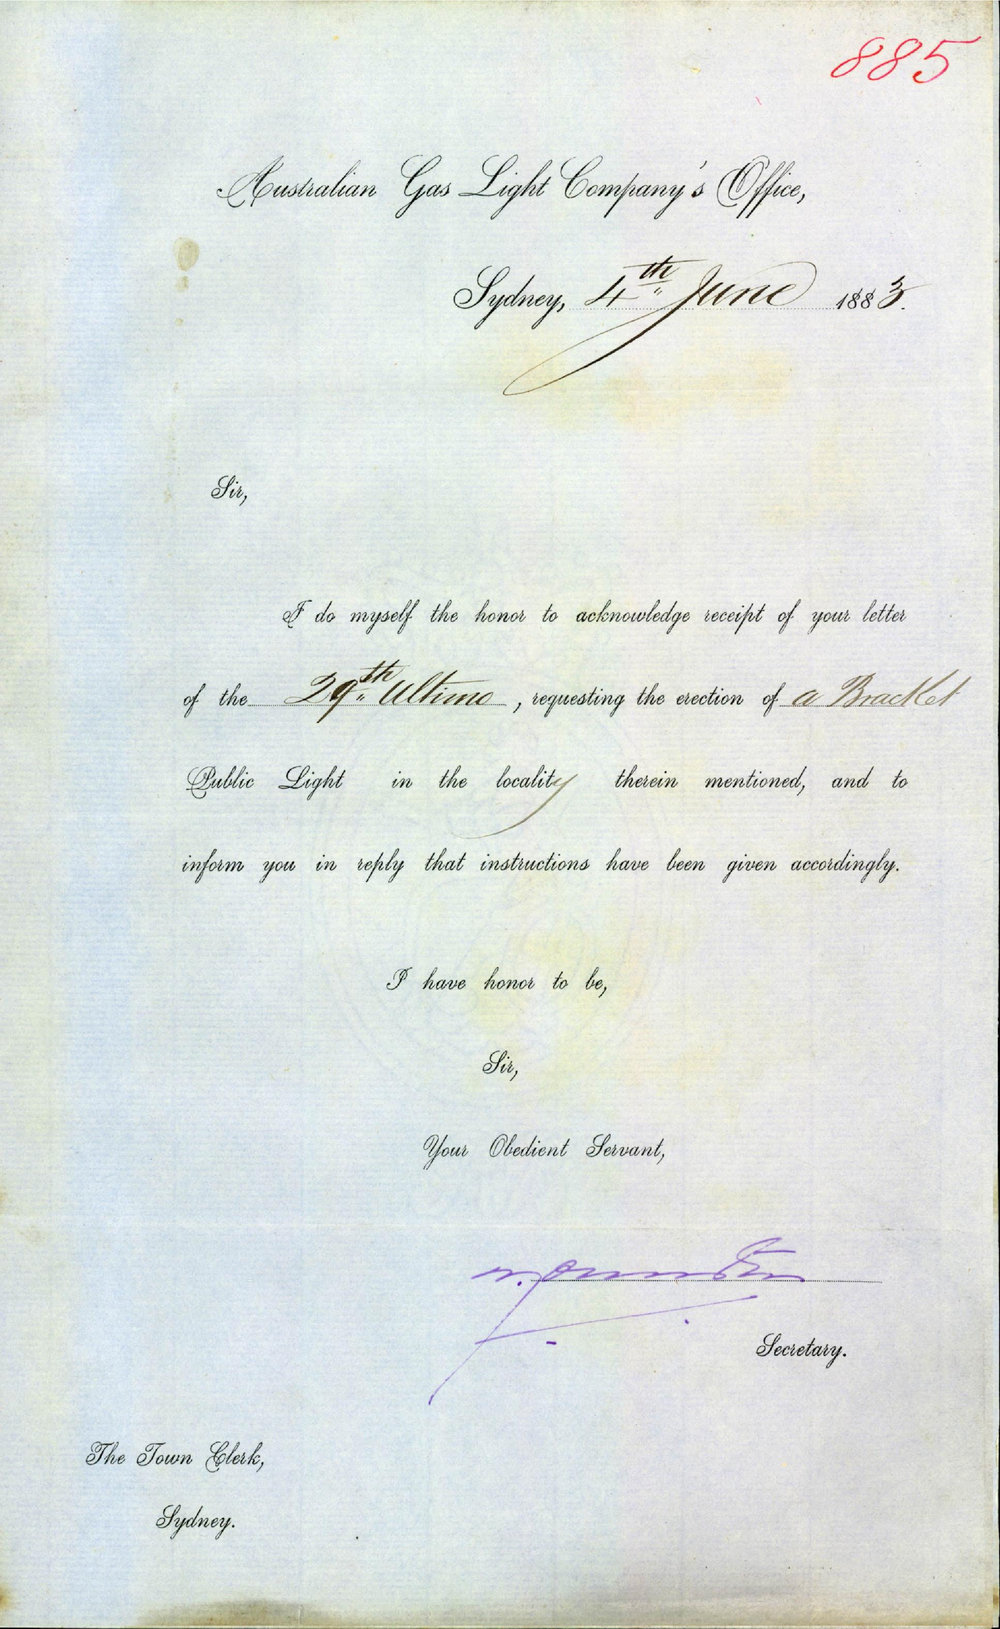 885
Australian Gas Light Company's Office,
Sydney, 4th June 1883.
Sir,
I do myself the honor to acknowledge receipt of your letter
of the 29th Ultimo, requesting the erection of a Bracket
Public Light in the locality therein mentioned, and to
inform you in reply that instructions have been given accordingly.
I have honor to be,
Sir,
Your Obedient Servant,
Secretary.
The Town Clerk,
Sydney.